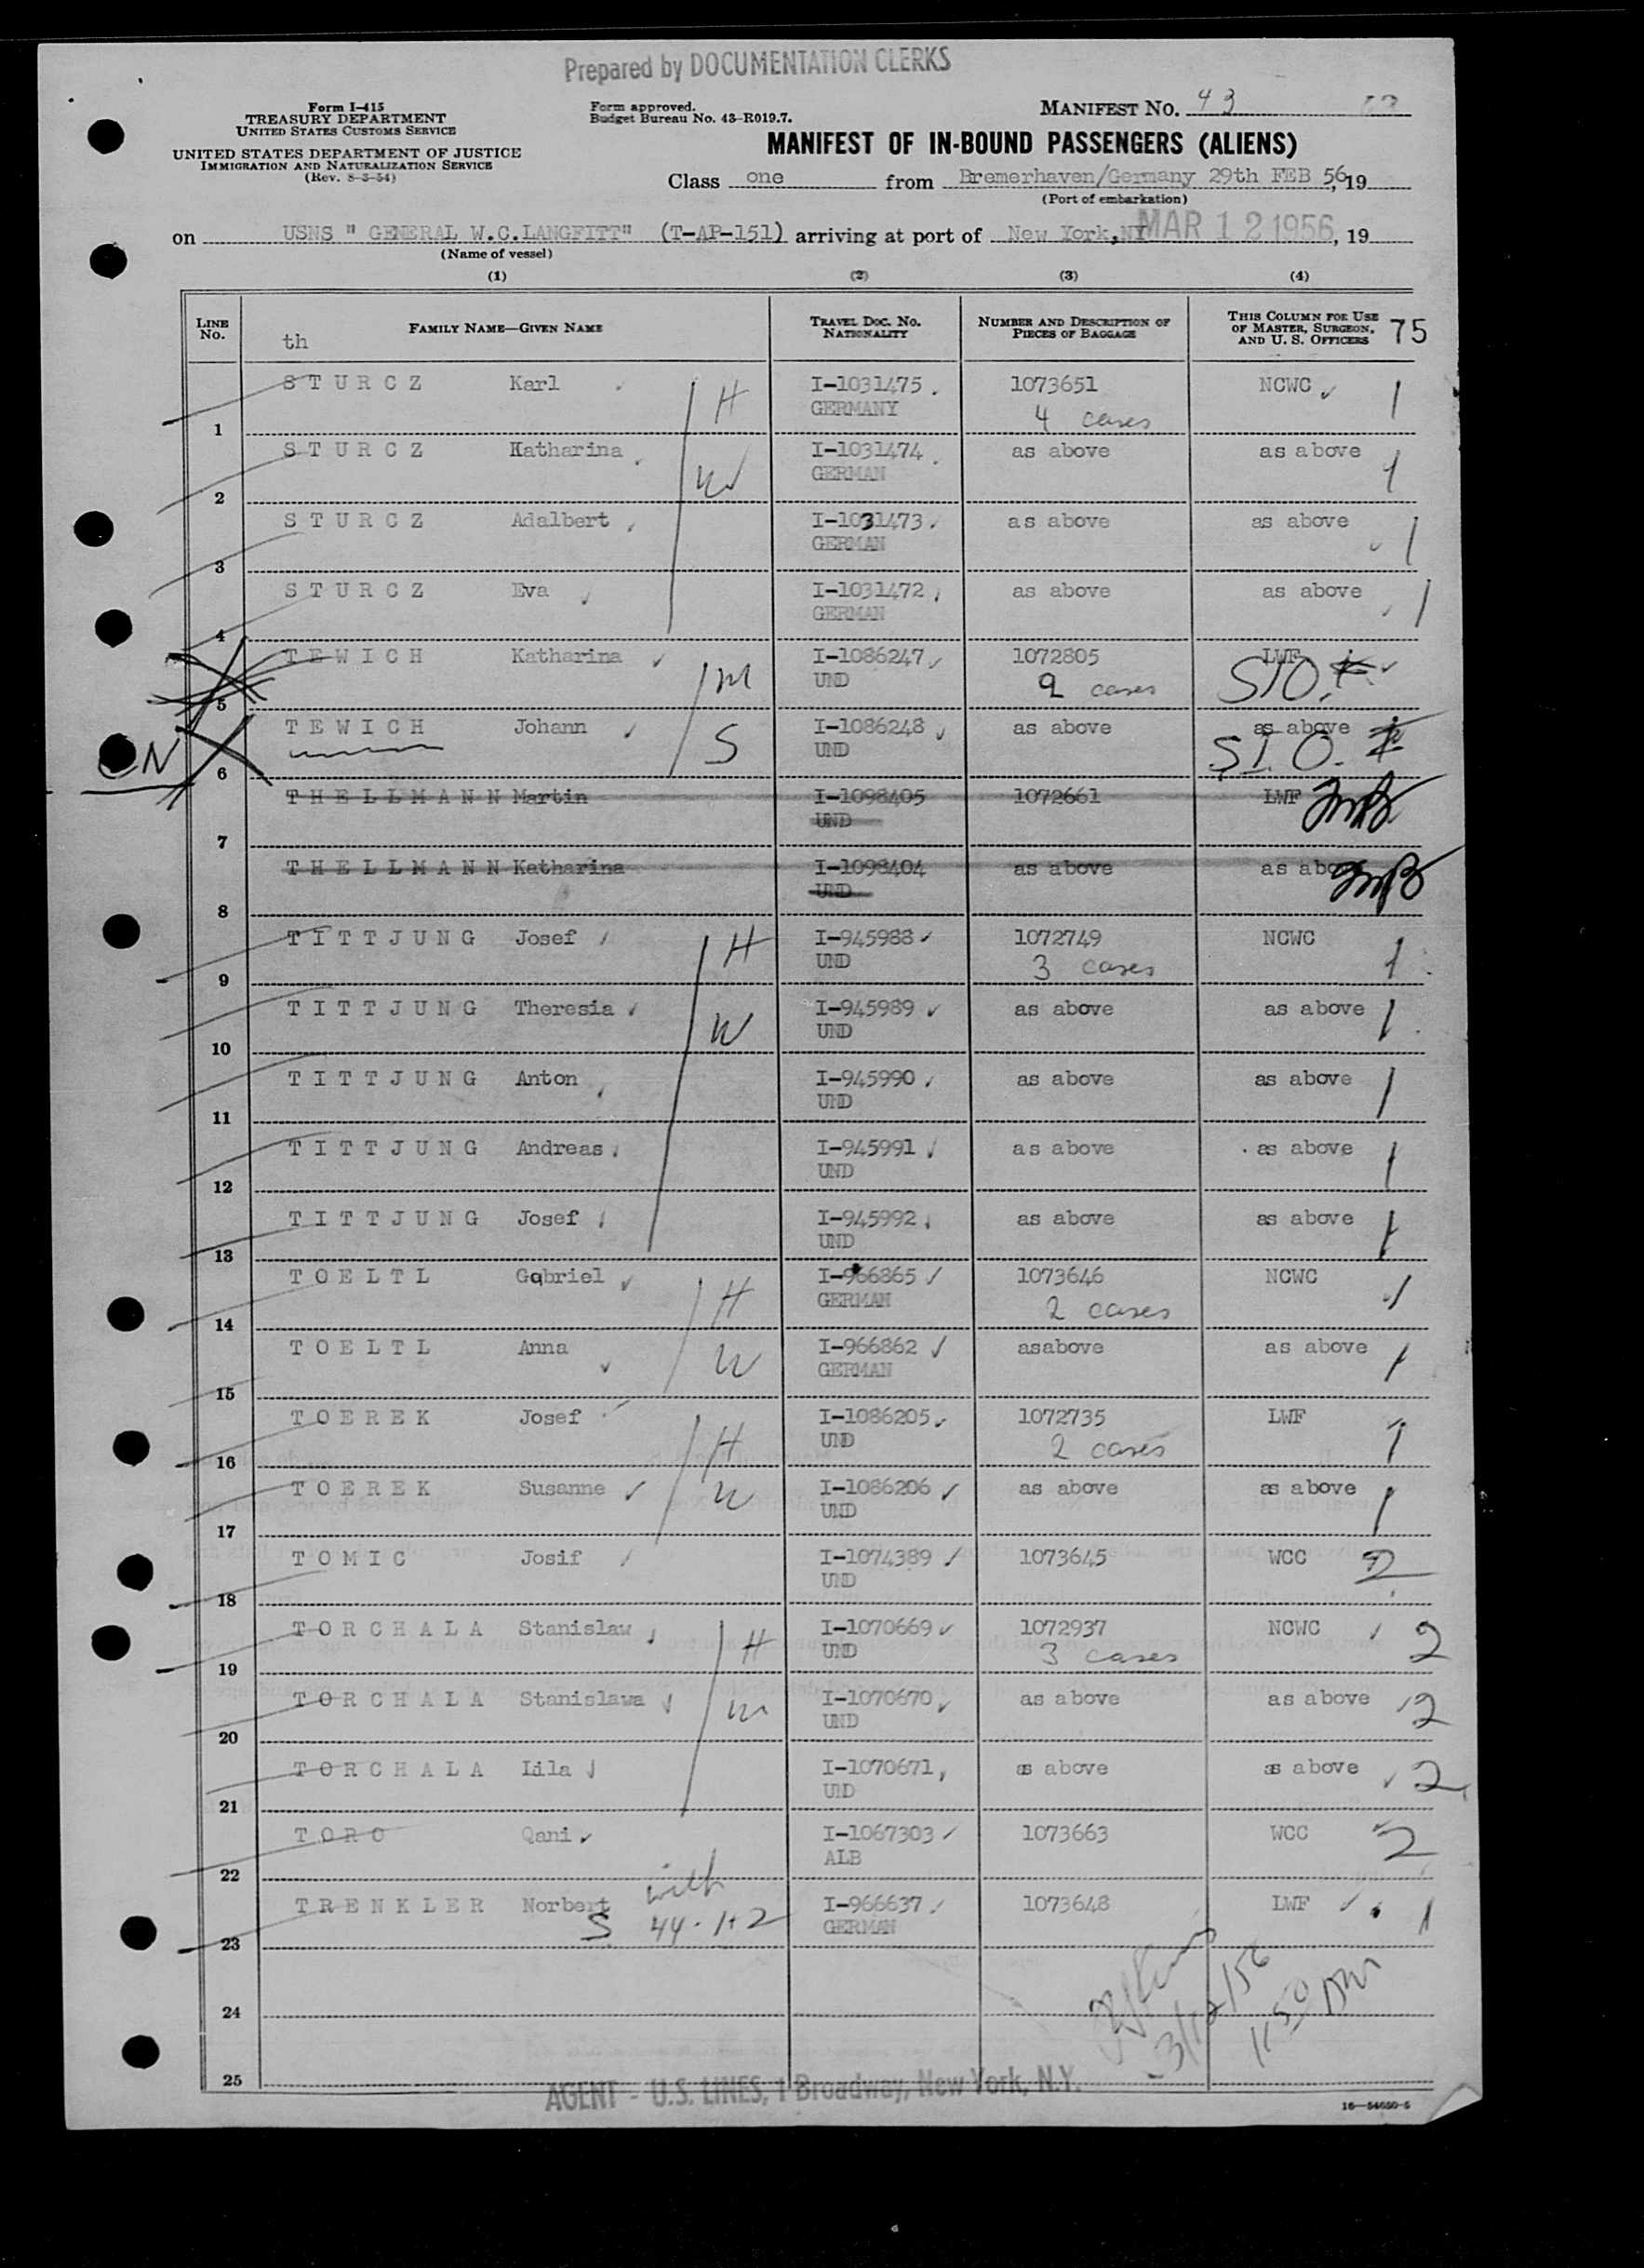 Prepared by DOCUMENTATION CLERKS
Form I-415
TREASURY DEPARTMENT
UNITED STATES CUSTOMS SERVICE
UNITED STATES DEPARTMENT OF JUSTICE
IMMIGRATION AND NATURALIZATION SERVICE
(Rev. 8-3-54)
Form approved.
Budget Bureau No. 43-R019.7.
MANIFEST NO. 43
MANIFEST OF IN-BOUND PASSENGERS (ALIENS)
Class one from Bremerhaven/Germany 29th FEB 56, 19
(Port of embarkation)
on USNS " GENERAL W.C.LANGFITT" (T-AP-151) arriving at port of New York, NY MAR 12 1956, 19
(Name of vessel)
(1) (2) (3) (4)
LINE NO. FAMILY NAME—GIVEN NAME TRAVEL DOC. NO. NATIONALITY NUMBER AND DESCRIPTION OF PIECES OF BAGGAGE THIS COLUMN FOR USE OF MASTER, SURGEON, AND U. S. OFFICERS 75
th
STURCZ Karl H I-1031475 1073651 NCWC 1
1 GERMANY 4 cases
STURCZ Katharina W I-1031474 as above as above 1
2 GERMAN
STURCZ Adalbert I-1031473 as above as above 1
3 GERMAN
STURCZ Eva I-1031472 as above as above 1
4 GERMAN
TEWICH Katharina M I-1086247 1072805 LWF
5 UND 2 cases SIO.
TEWICH Johann S I-1086248 as above as above
ON 6 UND S.I.O.
THELLMANN Martin I-1098405 1072661 LWF
7 UND
THELLMANN Katharina I-1098404 as above as above
8 UND
TITTJUNG Josef H I-945988 1072749 NCWC 1
9 UND 3 cases
TITTJUNG Theresia W I-945989 as above as above 1
10 UND
TITTJUNG Anton I-945990 as above as above 1
11 UND
TITTJUNG Andreas I-945991 as above as above 1
12 UND
TITTJUNG Josef I-945992 as above as above 1
13 UND
TOELTL Gqbriel H I-966865 1073646 NCWC 1
14 GERMAN 2 cases
TOELTL Anna W I-966862 asabove as above 1
15 GERMAN
TOEREK Josef H I-1086205 1072735 LWF 1
16 UND 2 cases
TOEREK Susanne W I-1086206 as above as above 1
17 UND
TOMIC Josif I-1074389 1073645 WCC 2
18 UND
TORCHALA Stanislaw H I-1070669 1072937 NCWC 2
19 UND 3 cases
TORCHALA Stanislawa W I-1070670 as above as above 2
20 UND
TORCHALA Lila I-1070671 as above as above 2
21 UND
TORO Qani I-1067303 1073663 WCC 2
22 ALB
TRENKLER Norbert with I-966637 1073648 LWF 1
23 S 44-1+2 GERMAN
24
3/12/56
25
AGENT - U.S. LINES, 1 Broadway, New York, N.Y.
16—54650-5